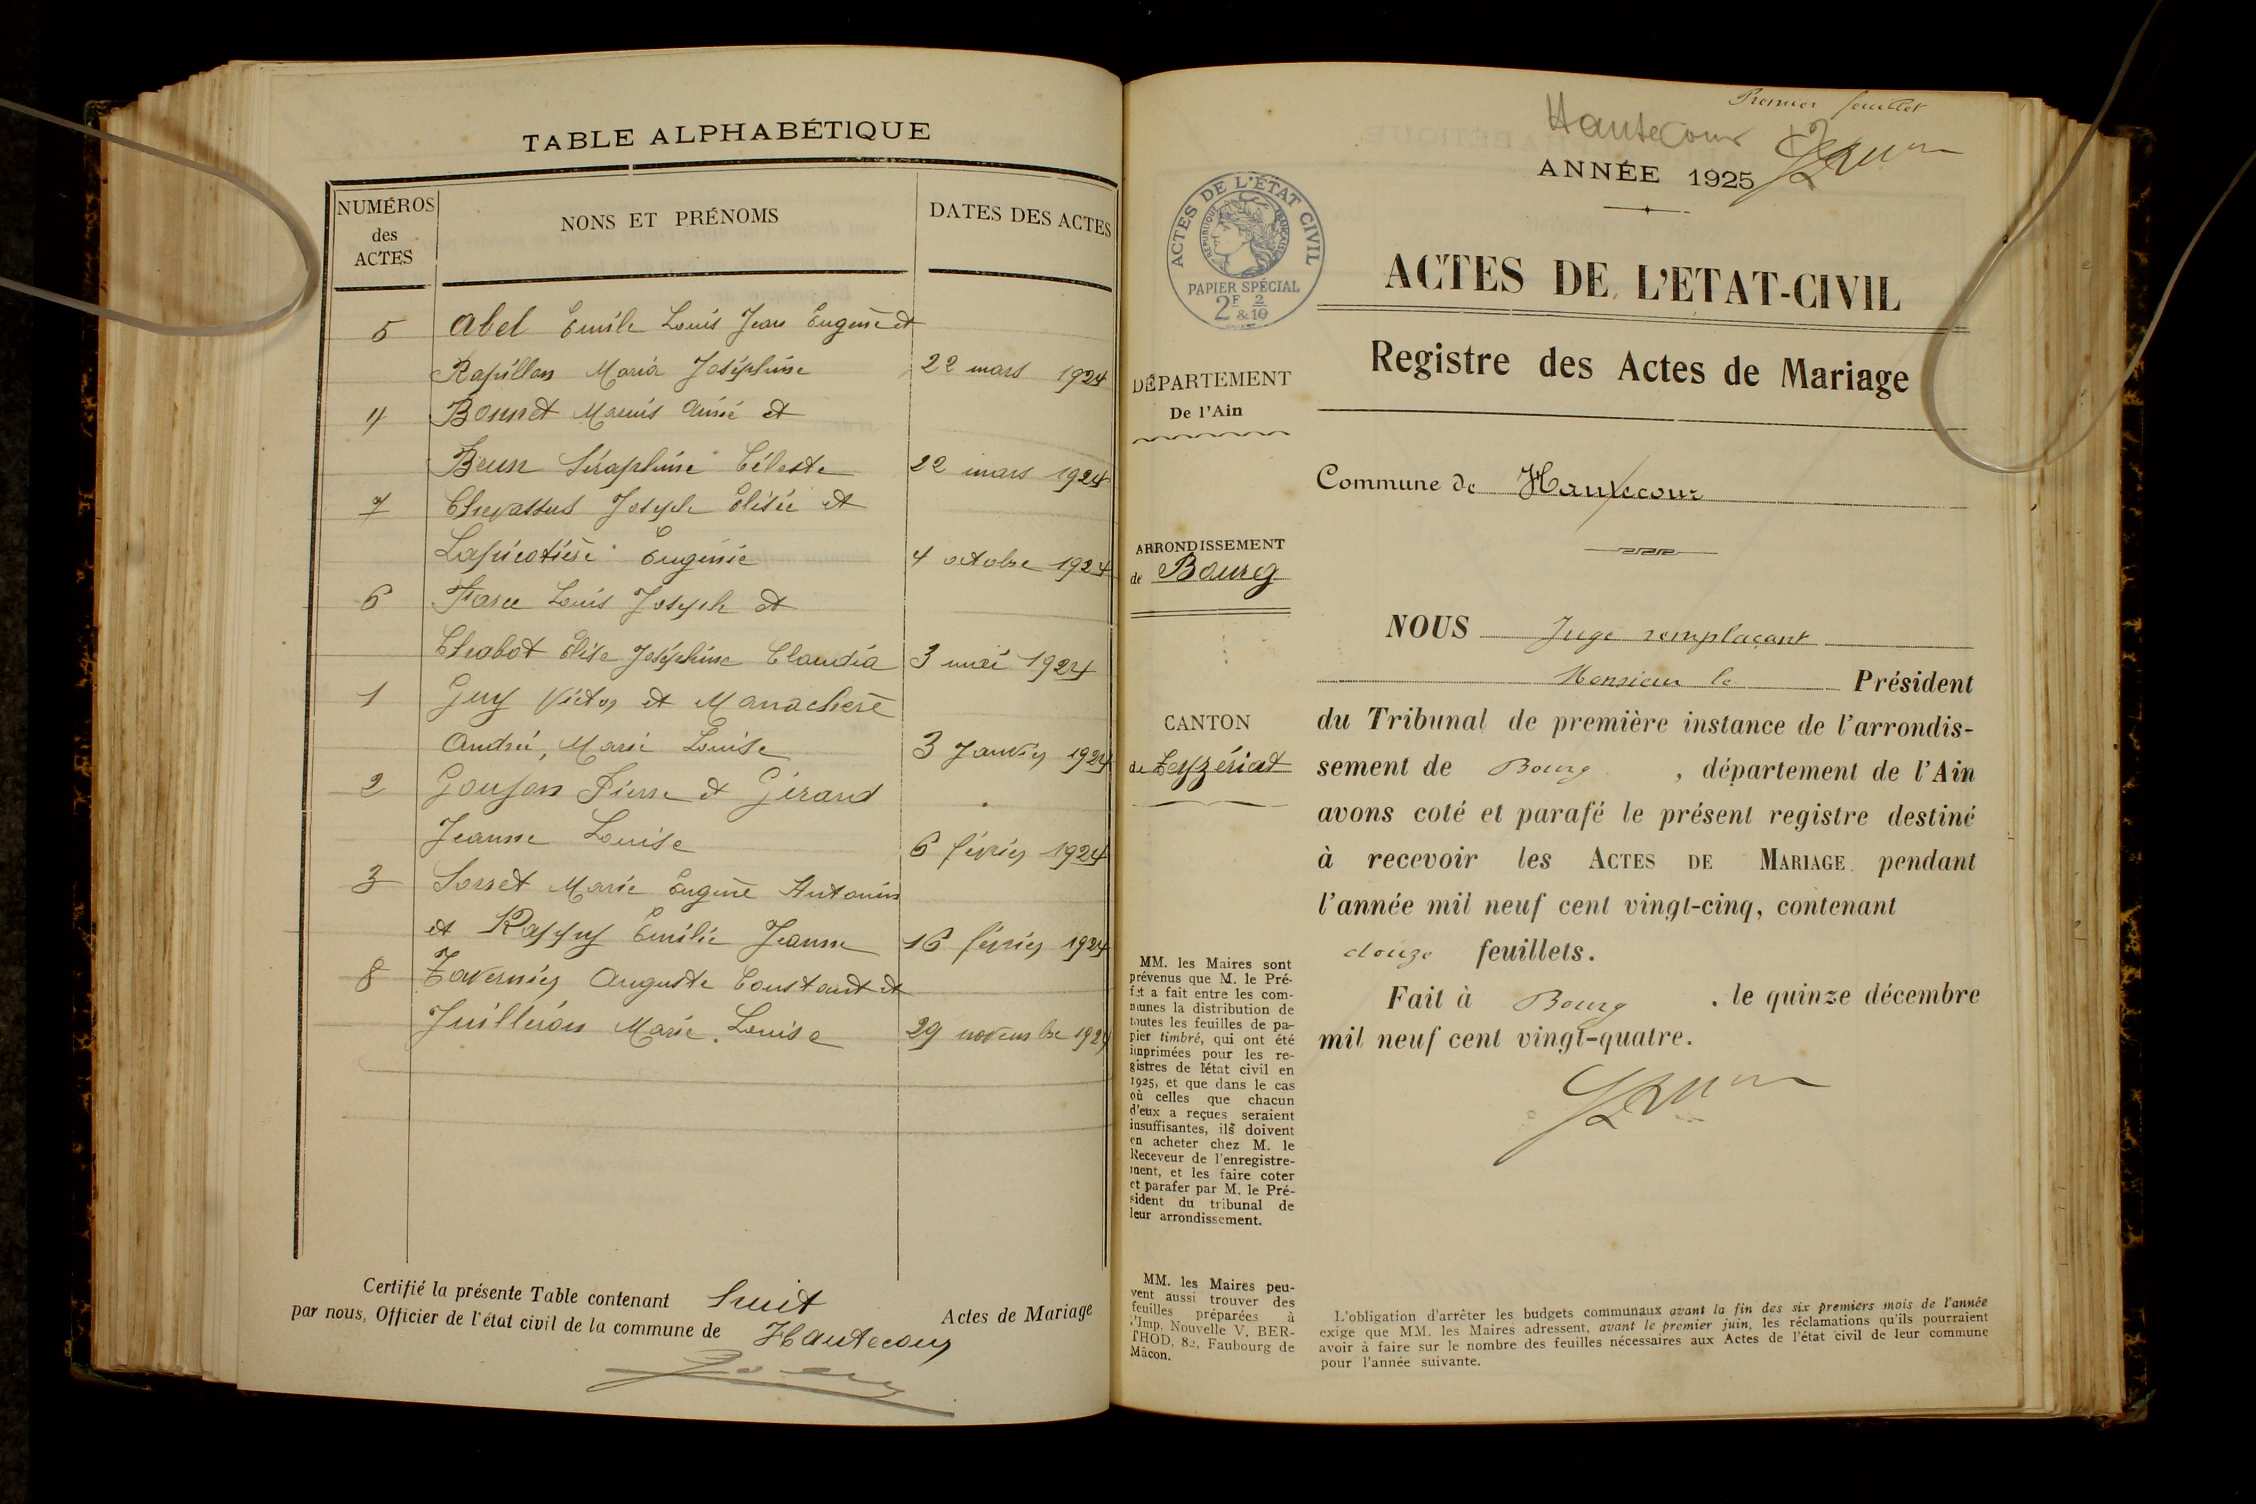 TABLE ALPHABÉTIQUE
NUMÉROS
des
ACTES
NONS ET PRÉNOMS
DATES DES ACTES
5 Abel Emile Louis Jean Eugène et
Rapillon Maria Joséphine 22 mars 1924
4 Bonnet Marius Aimé et
Beun Séraphine Céleste 22 mars 1924
7 Chevassus Joseph Elisée et
Lapicotière Eugénie 4 octobre 1924
6 Farce Louis Joseph et
Chabot Elise Joséphine Claudia 3 mai 1924
1 Guy Victor et Manachère
Andrée, Marie Louise 3 Janvier 1924
2 Goujon Pierre et Girand
Jeanne Louise 6 février 1924
3 Sorret Marie Eugène Antonin
et Rappy Emilie Jeanne 16 février 1924
8 Tavernier Auguste Constant et
Juilleron Marie Louise 29 novembre 1924
Certifié la présente Table contenant huit Actes de Mariage
par nous, Officier de l'état civil de la commune de Hautecour
Premier feuillet
Hautecour
ANNÉE 1925
ACTES DE L'ÉTAT CIVIL
RÉPUBLIQUE FRANÇAISE
PAPIER SPÉCIAL
2F 2
& 10
ACTES DE L'ETAT-CIVIL
Registre des Actes de Mariage
DÉPARTEMENT
De l'Ain
Commune de Hautecour
ARRONDISSEMENT
de Bourg
CANTON
de Ceyzériat
NOUS Juge remplaçant
Monsieur le Président
du Tribunal de première instance de l'arrondis-
sement de Bourg, département de l'Ain
avons coté et parafé le présent registre destiné
à recevoir les ACTES DE MARIAGE pendant
l'année mil neuf cent vingt-cinq, contenant
douze feuillets.
Fait à Bourg, le quinze décembre
mil neuf cent vingt-quatre.
MM. les Maires sont
prévenus que M. le Pré-
fet a fait entre les com-
munes la distribution de
toutes les feuilles de pa-
pier timbré, qui ont été
imprimées pour les re-
gistres de l'état civil en
1925, et que dans le cas
où celles que chacun
d'eux a reçues seraient
insuffisantes, ils doivent
en acheter chez M. le
Receveur de l'enregistre-
ment, et les faire coter
et parafer par M. le Pré-
sident du tribunal de
leur arrondissement.
MM. les Maires peu-
vent aussi trouver des
feuilles préparées à
l'Imp. Nouvelle V. BER-
THOD, 82, Faubourg de
Mâcon.
L'obligation d'arrêter les budgets communaux avant la fin des six premiers mois de l'année
exige que MM. les Maires adressent, avant le premier juin, les réclamations qu'ils pourraient
avoir à faire sur le nombre des feuilles nécessaires aux Actes de l'état civil de leur commune
pour l'année suivante.